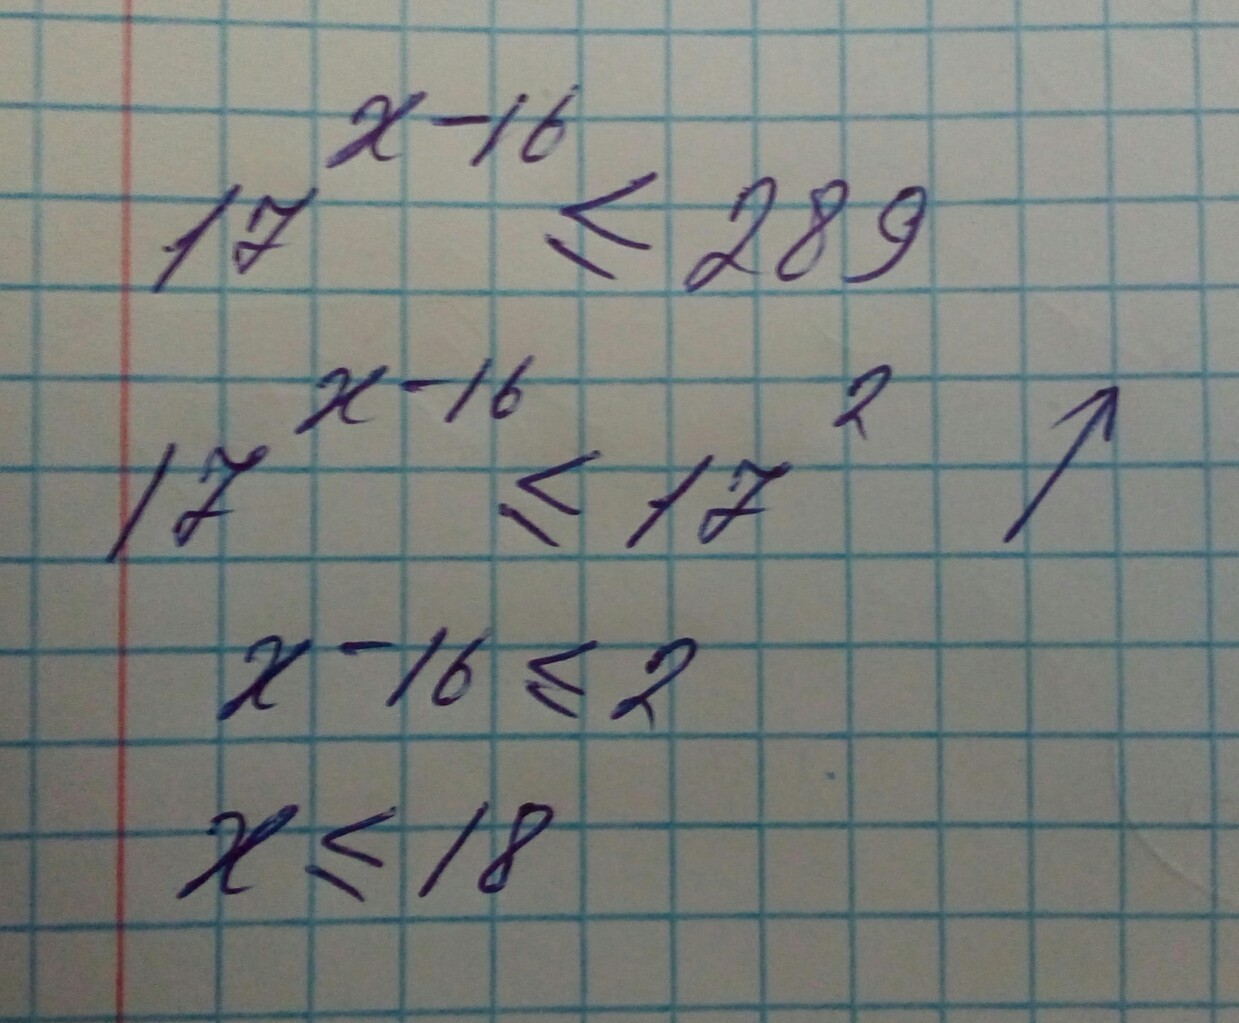 17^{x-16} ≤ 289
17^{x-16} ≤ 17^2 ↗
x - 16 ≤ 2
x ≤ 18